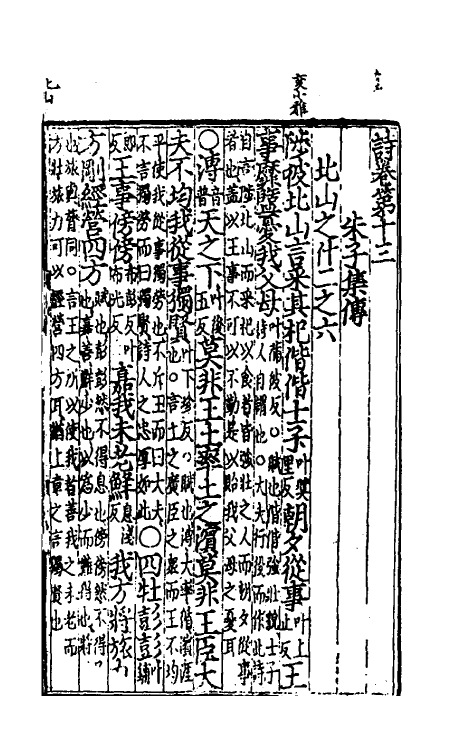 變小雅
詩卷第十三
朱子集傳
北山之什二之六
陟彼北山言采其杞偕偕士子叶奬里反朝夕從事叶上止反王
事靡盬憂我父母叶滿彼反○賦也偕偕強壯貌士子詩人自謂也○大夫行役而作此詩
自言陟北山而采杞以食者皆強壯之人而朝夕從事者也蓋以王事不可以不勤是以貽我父母之憂耳
○溥音普天之下叶後五反莫非王土率土之濱莫非王臣大
夫不均我從事獨賢叶下珍反○賦也溥大率循濱涯也○言土之廣臣之衆而王不均
平使我從事獨勞也不斥王而曰大夫不言獨勞而曰獨賢詩人之忠厚如此○四牡彭彭叶鋪
郎反王事傍傍布彭反叶布光反嘉我未老鮮息淺反我方將旅力
方剛經營四方賦也彭彭然不得息也傍傍然不得已也嘉善鮮少也以爲少而難得也將
壯也旅與膂同○言王之所以使我者善我之未老而方壯旅力可以經營四方耳猶上章之言獨賢也